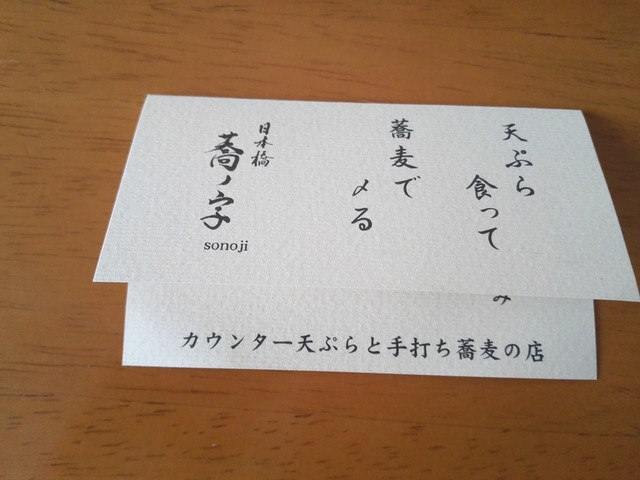 天ぷら
食って
蕎麦で
〆る
日本橋
蕎ノ字
sonoji
み
カウンター天ぷらと手打ち蕎麦の店